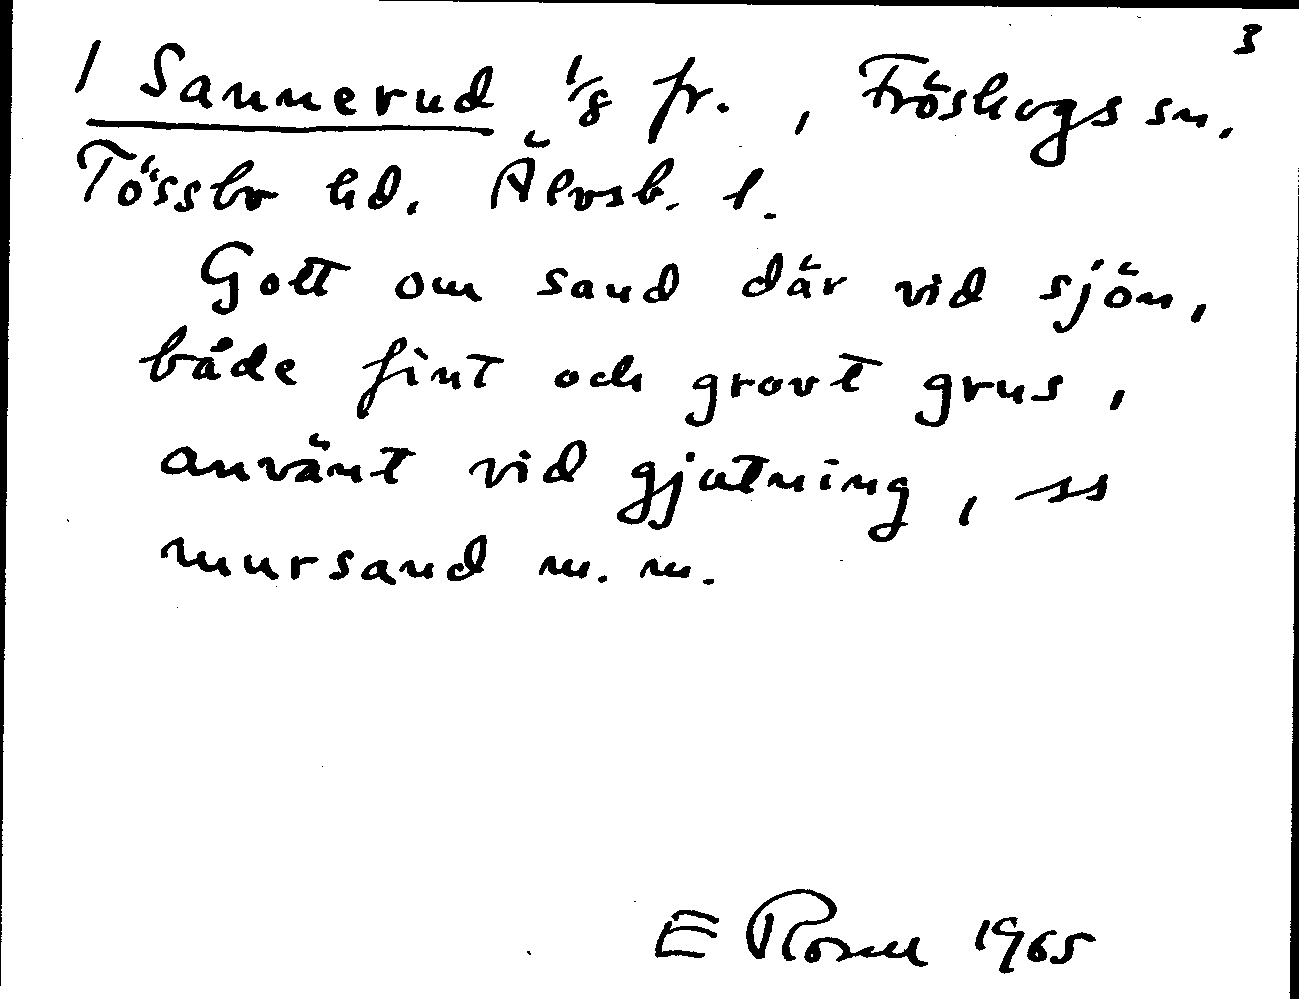 3
1 Sannerud 1/8 fr. , Fröskogs sn.
Tössbo hd. Älvsb. l.
Gott om sand där vid sjön,
både fint och grovt grus,
använt vid gjutning, ss
mursand m. m.
E Rosell 1965